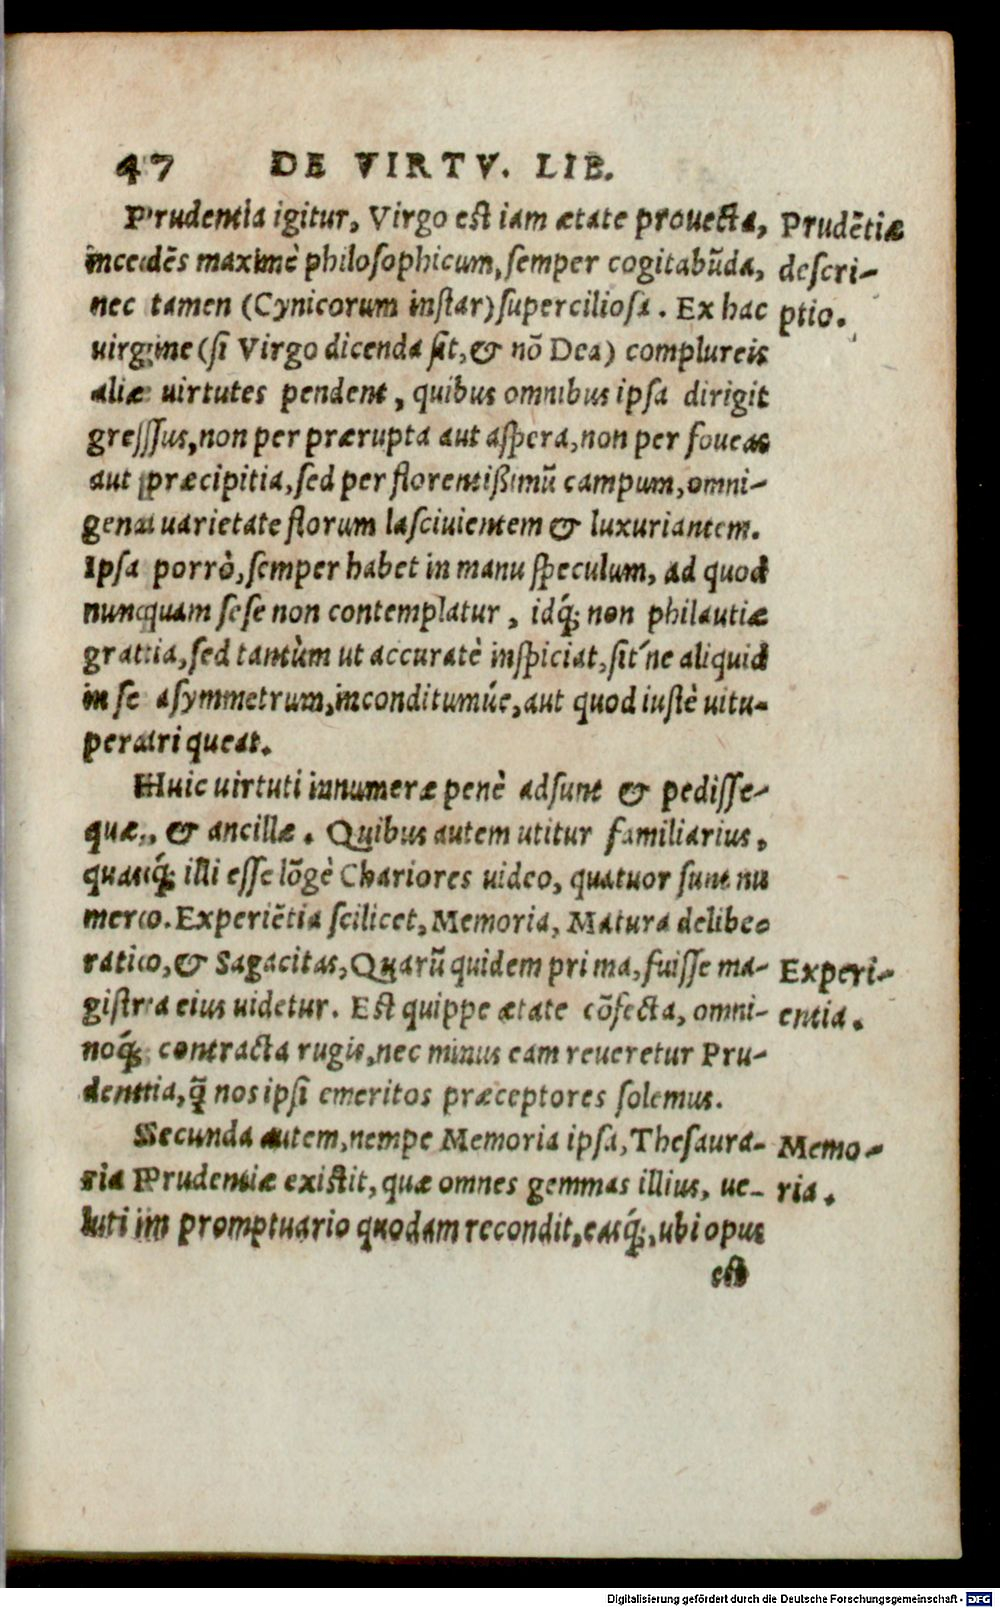 47 DE VIRTV. LIB.
Prudentia igitur, Virgo est iam ætate prouecta,
Prudẽtiæ
incedẽs maximè philosophicum, semper cogitabũda,
descri-
nec tamen (Cynicorum instar) superciliosa. Ex hac
ptio.
uirgine (si Virgo dicenda sit, & nõ Dea) complureis
aliæ uirtutes pendent, quibus omnibus ipsa dirigit
gressus, non per prærupta aut aspera, non per foueas
aut præcipitia, sed per florentißimũ campum, omni-
gena uarietate florum lasciuientem & luxuriantem.
Ipsa porrò, semper habet in manu speculum, ad quod
nunquam sese non contemplatur, idq́; non philautiæ
gratia, sed tantùm ut accuratè inspiciat, sit´ne aliquid
in se asymmetrum, inconditumúe, aut quod iustè uitu-
perari queat.
Huic uirtuti innumeræ penè adsunt & pedisse-
quæ, & ancillæ. Quibus autem utitur familiarius,
quasq́; illi esse lõgè Chariores uideo, quatuor sunt nu
mero. Experiẽtia scilicet, Memoria, Matura delibe-
ratio, & Sagacitas, Quarũ quidem prima, fuisse ma-
Experi-
gistra eius uidetur. Est quippe ætate cõfecta, omni-
entia.
noq́; contracta rugis, nec minus eam reueretur Pru-
dentia, q̃ nos ipsi emeritos præceptores solemus.
Secunda autem, nempe Memoria ipsa, Thesaura-
Memo-
ria Prudentiæ existit, quæ omnes gemmas illius, ue-
ria.
luti in promptuario quodam recondit, easq́;, ubi opus
est
Digitalisierung gefördert durch die Deutsche Forschungsgemeinschaft - DFG